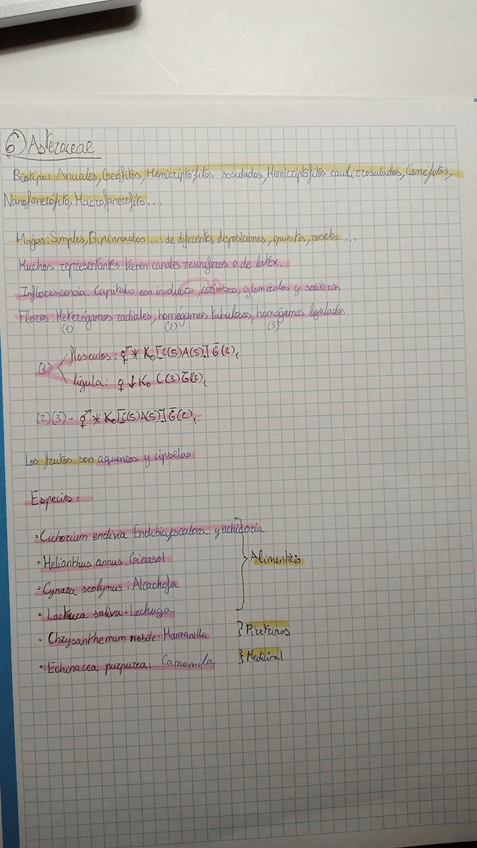 6) Asteraceae
Biotipo: Anuales, Geófitos, Hemicriptófitos rosulados, Hemicriptófitos caulirrosulados, Caméfitos,
Nanofanerófito, Macrofanerófito...
Hojas: Simples, Bipinnadas... de diferentes disposiciones, opuestas, rosetas...
Muchos representantes tienen canales resiníferos o de látex.
Inflorescencia: Capítulo con involucro, corimbos, glomérulos y solitarias
Flores: Heterógamos radiales, homógamos tubulosos, homógamos ligulados
(1) (2) (3)
(1) flósculos: ⚥ * K0 [C(5) A(5)] G(2),
lígula: ♀ ↓ K0 C(3) G(2),
(2)(3) - ⚥ * K0 [C(5) A(5)] G(2),
Los frutos son aquenios y cipselas
Especies:
• Cichorium endivia Endibia, escarola y achicoria
• Helianthus annus. Girasol
• Cynara scolymus: Alcachofa
} Alimenticio
• Lactuca sativa: Lechuga
• Chrysanthemum nobile: Manzanilla } Piretrinas
• Echinacea purpurea. Camomila } Medicinal